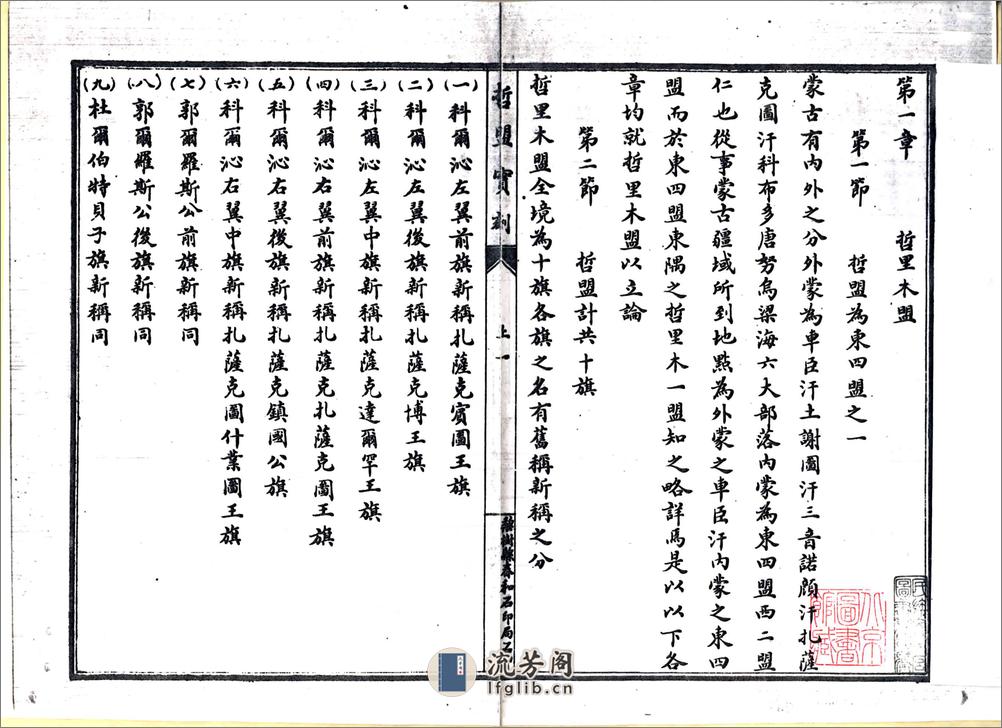 第一章　　哲里木盟
第一節　　哲盟為東四盟之一
蒙古有內外之分外蒙為車臣汗土謝圖汗三音諾顏汗扎薩
克圖汗科布多唐努烏梁海六大部落內蒙為東四盟西二盟
仁也從事蒙古疆域所到地點為外蒙之車臣汗內蒙之東四
盟而於東四盟東隅之哲里木一盟知之略詳焉是以以下各
章均就哲里木盟以立論
第二節　　哲盟計共十旗
哲里木盟全境為十旗各旗之名有舊稱新稱之分
哲盟實剂
上一
春和石印局
(一)科爾沁左翼前旗新稱扎薩克賓圖王旗
(二)科爾沁左翼後旗新稱扎薩克博王旗
(三)科爾沁左翼中旗新稱扎薩克達爾罕王旗
(四)科爾沁右翼前旗新稱扎薩克扎薩克圖王旗
(五)科爾沁右翼後旗新稱扎薩克鎮國公旗
(六)科爾沁右翼中旗新稱扎薩克圖什業圖王旗
(七)郭爾羅斯公前旗新稱同
(八)郭爾羅斯公後旗新稱同
(九)杜爾伯特貝子旗新稱同
北京圖書館藏
流芳阁
lfglib.cn